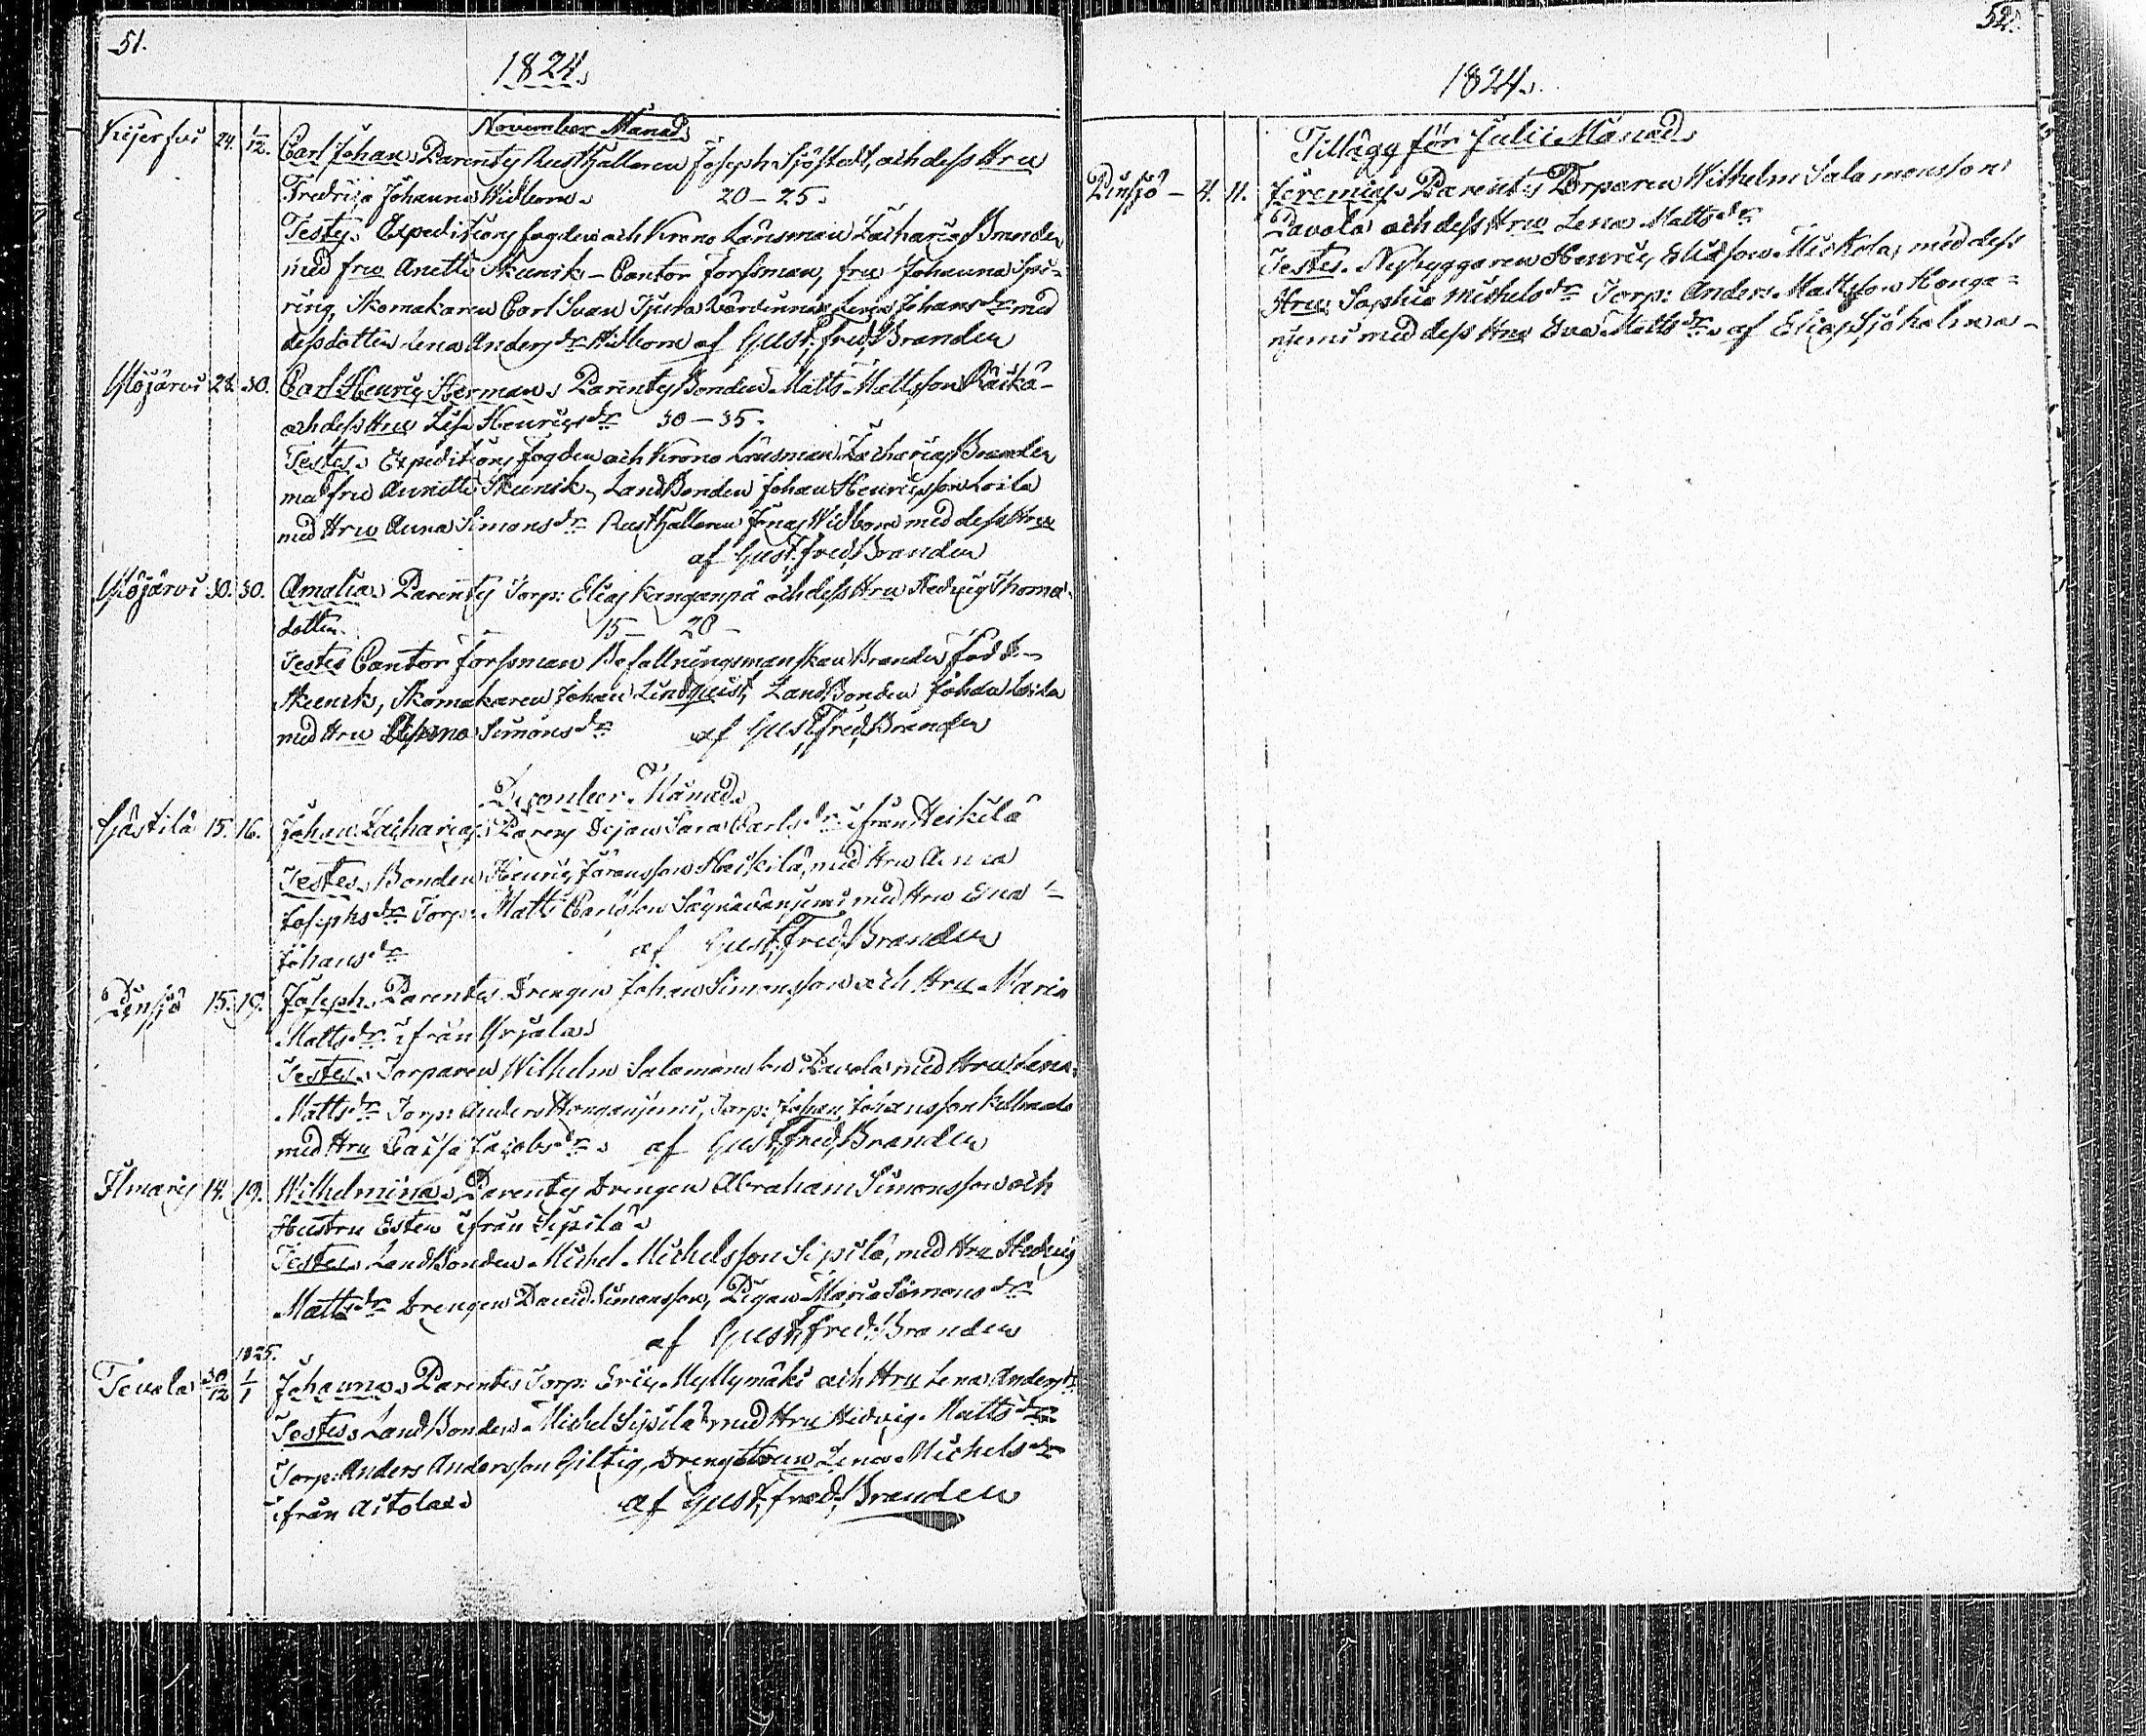 51.
1824.
November Månad.
Kyerfvi 24. 1/12. Carl Johan. Parentes Rusthållaren Joseph Sjöstedt, och dess Hru
Fredrica Johanna Widbom. 20–25.
Testes. Expeditions fogden och Krono Länsman Zacharias Brander
med fru Anette Skeunik – Cantor Forssman, fru Johanna Spi=
ring, Skomakaren Carl Ivan Lena Johansdr med
dess dotter Lena Andersdr Widbom af Gust. Fred. Brander
Ylöjärvi 24. 30. Carl Henric Herman. Parentes Bonden Matts Mattsson Räikä
och dess Hru Lisa Henricsdr 30–35.
Testes. Expeditions Fogden och Krono Länsman Zacharias Brander
med fru Annette Skeunik, Landbonden Johan Henricsson Loila
med Hru Anna Simonsdr Rusthållaren Jonas Widbom med dess Hru
af Gust. Fred. Brander
Ylöjärvi 30. 30. Amalia. Parentes Torp: Elias Kanganpä och dess Hru Hedvig Thomæ
dotter. 15– 20–
Testes Cantor Forssman Befallningsmanskan Brander född
Skeunik, Skomakaren Johan Lindquist, Landbonden Johan Loila
med Hru Simonsdr af Gust. Fred. Brander
December Månad.
Gästilä 15. 16. Johan Zacharias. Parens Pigan Sara Carlsdr ifrån Heikilä
Testes. Bonden Henric Göransson Heikilä, med Hru Anna
Josephsdr Torp: Matts Carlsson med Hru Eva
Johansdr af Gust. Fred. Brander
Pinsjö 15. 19. Joseph. Parentes Drengen Johan Simonsson och Hru Maria
Mattsdr ifrån Yrjälä.
Testes. Torparen Wilhelm Salomonsson Pavola med Hru Lena
Mattsdr Torp: Anders Honganjemi, Torp: Johan Johansson
med Hru Caisa Jacobsdr. af Gust. Fred. Brander
Ilmaris 14. 19. Wilhelmina. Parentes Drengen Abraham Simonsson och
Hustru Ester ifrån Sipilä.
Testes. Landbonden Michel Michelsson Sipilä, med Hru Hedvig
Mattsdr Drengen David Simonsson, Pigan Maria Simonsdr
af Gust. Fred. Brander
1825.
Tevala 30/12 1/1 Johanna. Parentes Torp: Eric Myllymäki och Hru Lena Andersdr
Testes. Landbonden Michel Sipilä med Hru Hedvig Mattsdr
Torp: Anders Andersson Giltig, Drengstrun Lena Michelsdr
ifrån Aitola. af Gust. Fred. Brander
52.
1824.
Tillägg för Julii Månad.
Pinsjö – 4. 11. Jeremias. Parentes Torparen Wilhelm Salomonsson
Pavola och dess Hru Lena Mattsdr
Testes. Nybyggaren Henric Eliasson Mickola, med dess
Hru Sophia Michelsdr Torp: Anders Mattsson Honga=
njemi med dess Hru Eva Mattsdr. af Elias Sjöholm.